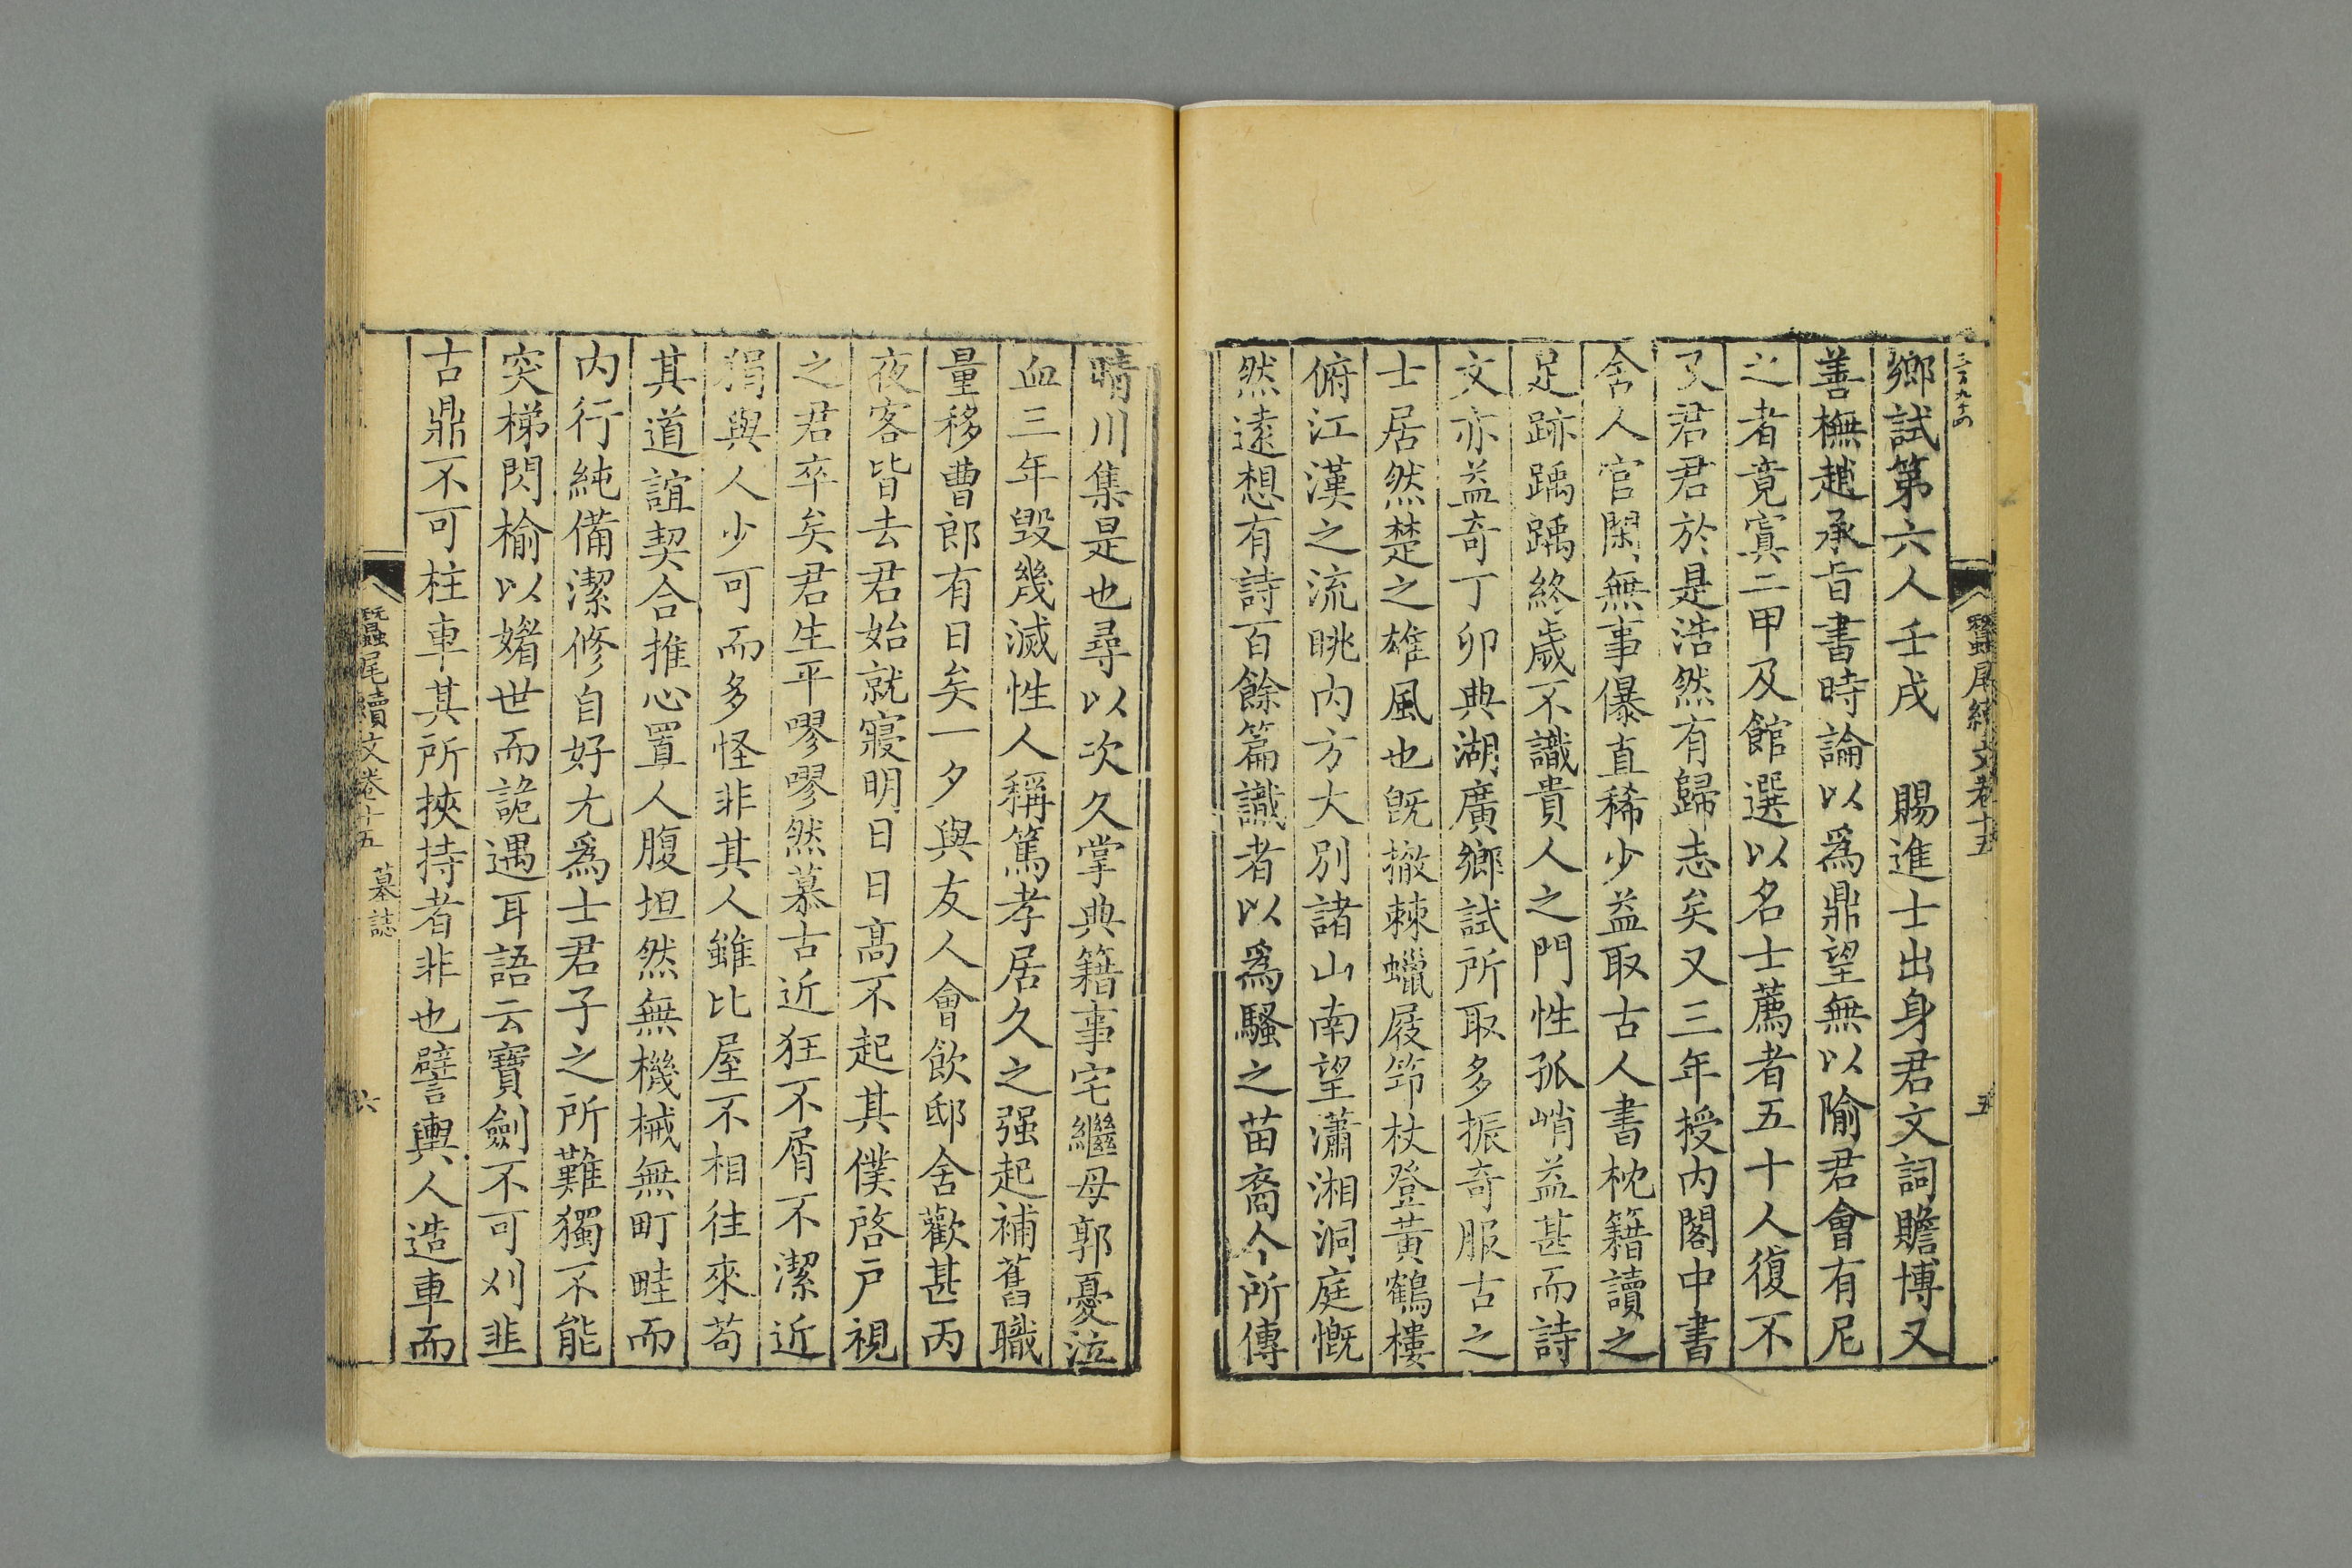 鄉試第六人壬戌　賜進士出身君文詞贍博又
善橅趙承旨書時論以爲鼎望無以隃君會有尼
之者竟寘二甲及館選以名士薦者五十人復不
及君君於是浩然有歸志矣又三年授內閣中書
舍人官閑無事儤直稀少益取古人書枕籍讀之
足跡踽踽終歲不識貴人之門性孤峭益甚而詩
文亦益奇丁卯典湖廣鄉試所取多振奇服古之
士居然楚之雄風也旣撤棘蠟屐笻杖登黃鶴樓
俯江漢之流眺內方大別諸山南望瀟湘洞庭慨
然遠想有詩百餘篇識者以爲騷之苗裔今所傳
蠶尾續文卷十五
五
晴川集是也尋以次久掌典籍事宅繼母郭憂泣
血三年毀幾滅性人稱篤孝居久之强起補舊職
量移曹郎有日矣一夕與友人會飲邸舍歡甚丙
夜客皆去君始就寢明日日高不起其僕啓戶視
之君卒矣君生平嘐嘐然慕古近狂不屑不潔近
狷與人少可而多怪非其人雖比屋不相往來苟
其道誼契合推心置人腹坦然無機械無町畦而
內行純備潔修自好尤爲士君子之所難獨不能
突梯閃榆以媚世而詭遇耳語云寶劍不可刈韭
古鼎不可柱車其所挾持者非也譬輿人造車而
蠶尾續文卷十五
墓誌
六